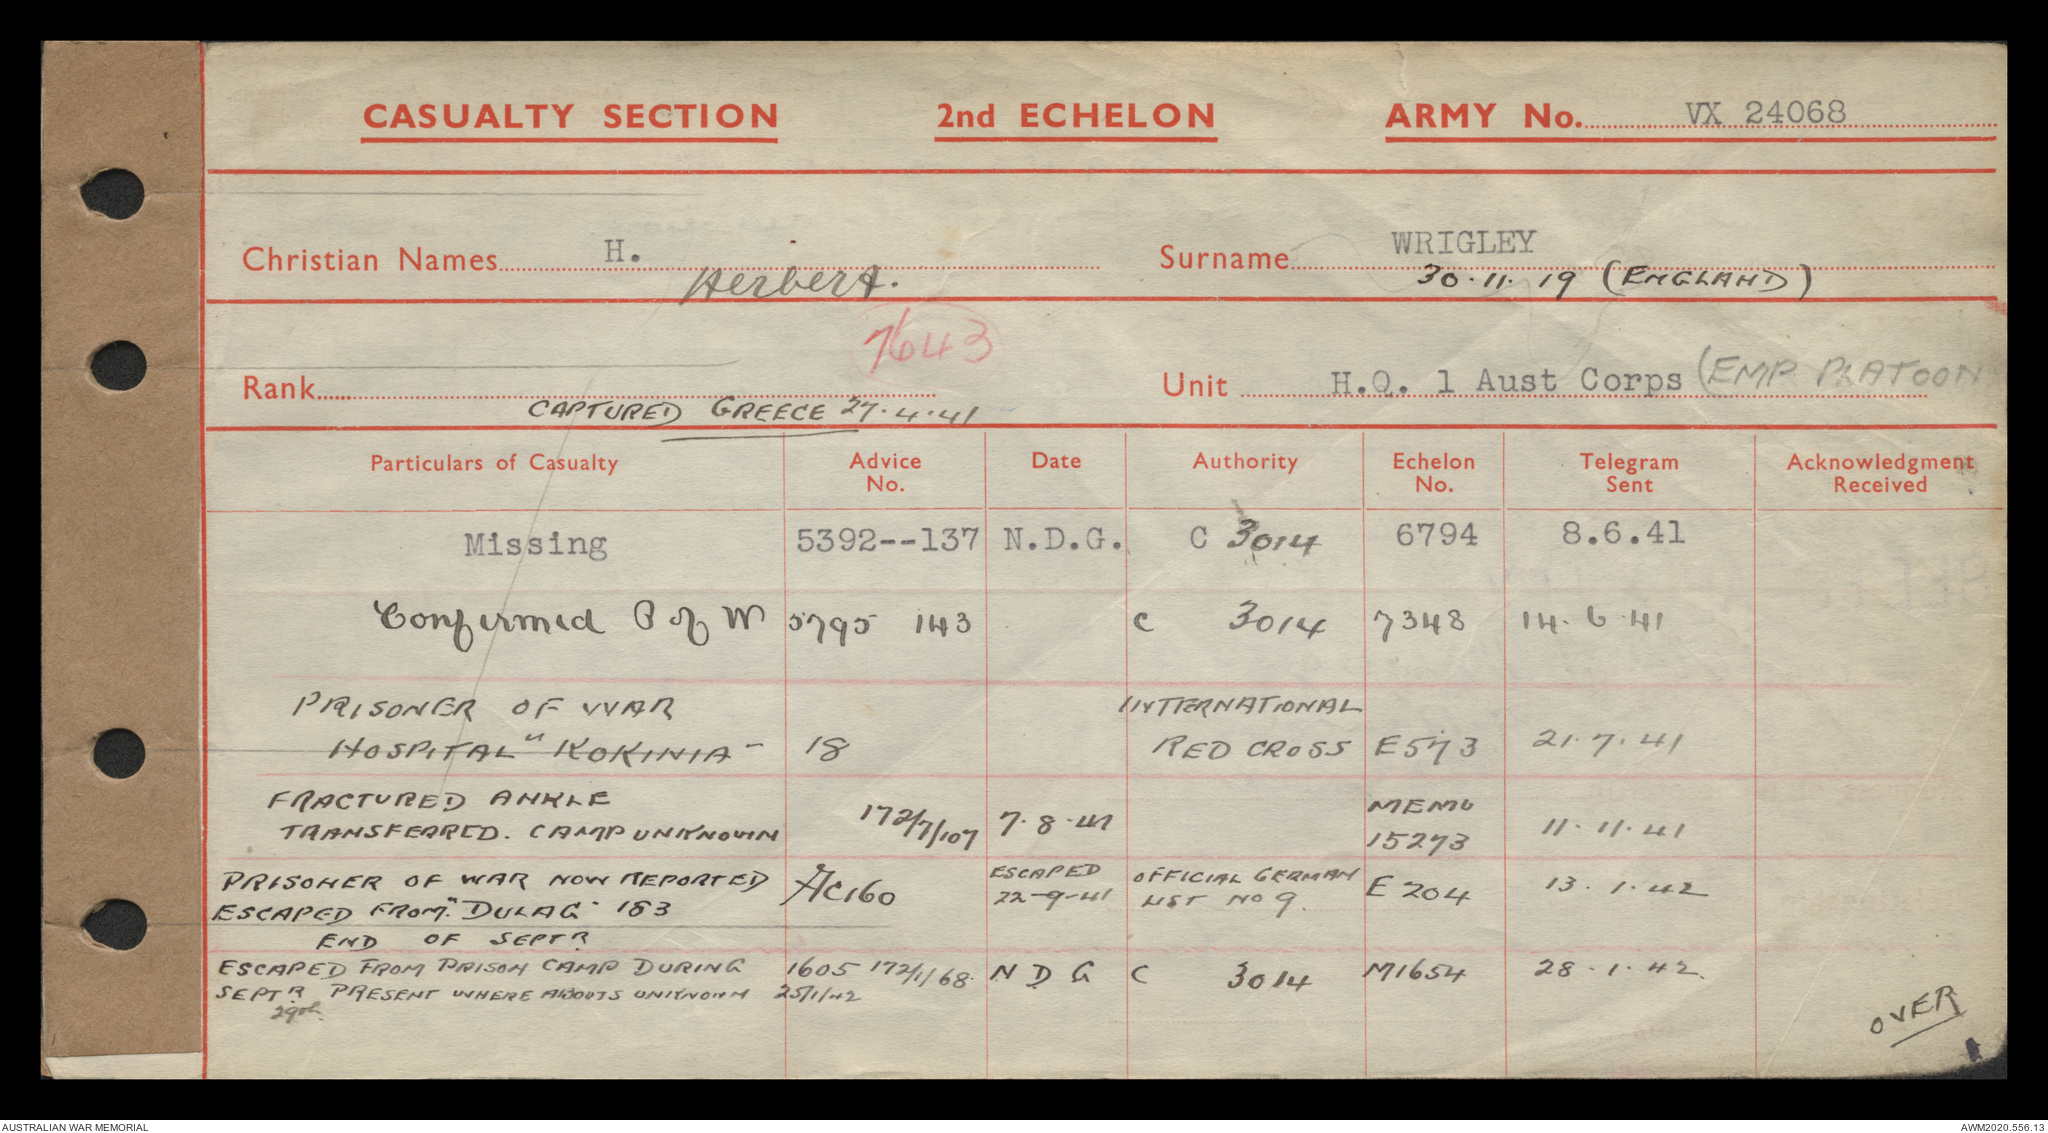 CASUALTY SECTION 2nd ECHELON ARMY No. VX 24068
Christian Names H. Surname WRIGLEY
Herbert. 30.11.19 (ENGLAND)
7643
Rank Unit H.Q. 1 Aust Corps (EMP. PLATOON
CAPTURED GREECE 27.4.41
Particulars of Casualty Advice No. Date Authority Echelon No. Telegram Sent Acknowledgment Received
Missing 5392--137 N.D.G. C 3014 6794 8.6.41
Confirmed P of W 5795 143 C 3014 7348 14.6.41
PRISONER OF WAR INTERNATIONAL
HOSPITAL "KOKINIA" 18 RED CROSS E573 21.7.41
FRACTURED ANKLE MEMO
TRANSFERRED. CAMP UNKNOWN 172/7/107 7.8.41 15273 11.11.41
PRISONER OF WAR NOW REPORTED ESCAPED OFFICIAL GERMAN
ESCAPED FROM "DULAG" 183 AC160 22-9-41 LIST NO 9. E 204 13.1.42
END OF SEPTR
ESCAPED FROM PRISON CAMP DURING 1605 172/1/68. N D G C 3014 M1654 28.1.42.
SEPTR PRESENT WHERE ABOUTS UNKNOWN 25/1/42
29th.
OVER
AUSTRALIAN WAR MEMORIAL AWM2020.556.13